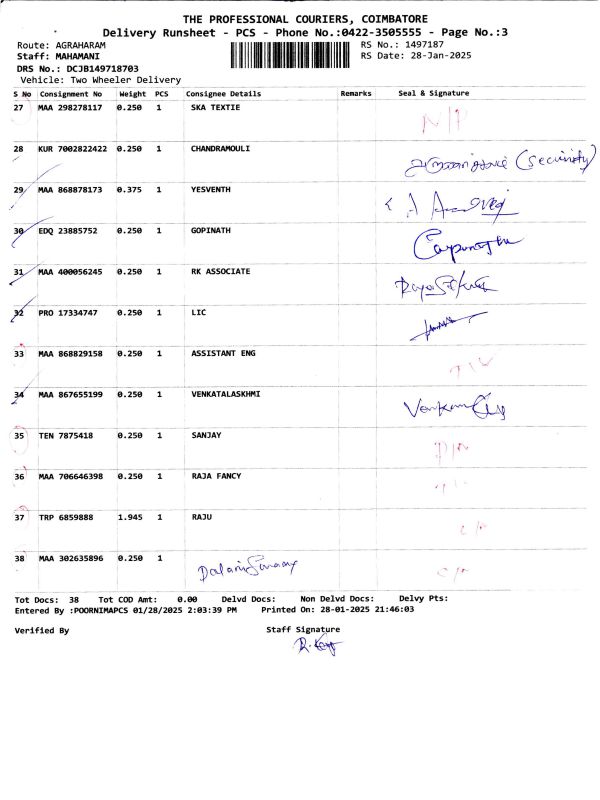 THE PROFESSIONAL COURIERS, COIMBATORE
Delivery Runsheet - PCS - Phone No.:0422-3505555 - Page No.:3
Route: AGRAHARAM RS No.: 1497187
Staff: MAHAMANI RS Date: 28-Jan-2025
DRS No.: DCJB149718703
Vehicle: Two Wheeler Delivery
S No Consignment No Weight PCS Consignee Details Remarks Seal & Signature
27 MAA 298278117 0.250 1 SKA TEXTIE N/P
28 KUR 7002822422 0.250 1 CHANDRAMOULI (Security)
29 MAA 868878173 0.375 1 YESVENTH
30 EDQ 23885752 0.250 1 GOPINATH
31 MAA 400056245 0.250 1 RK ASSOCIATE
32 PRO 17334747 0.250 1 LIC
33 MAA 868829158 0.250 1 ASSISTANT ENG
34 MAA 867655199 0.250 1 VENKATALASKHMI
35 TEN 7875418 0.250 1 SANJAY
36 MAA 706646398 0.250 1 RAJA FANCY
37 TRP 6859888 1.945 1 RAJU
38 MAA 302635896 0.250 1
Tot Docs: 38 Tot COD Amt: 0.00 Delvd Docs: Non Delvd Docs: Delvy Pts:
Entered By :POORNIMAPCS 01/28/2025 2:03:39 PM Printed On: 28-01-2025 21:46:03
Verified By Staff Signature